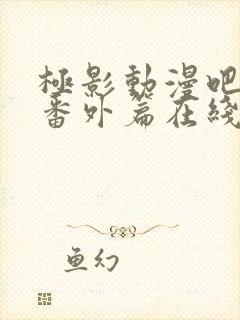 極影動漫吧
番外篇在綫
魚幻